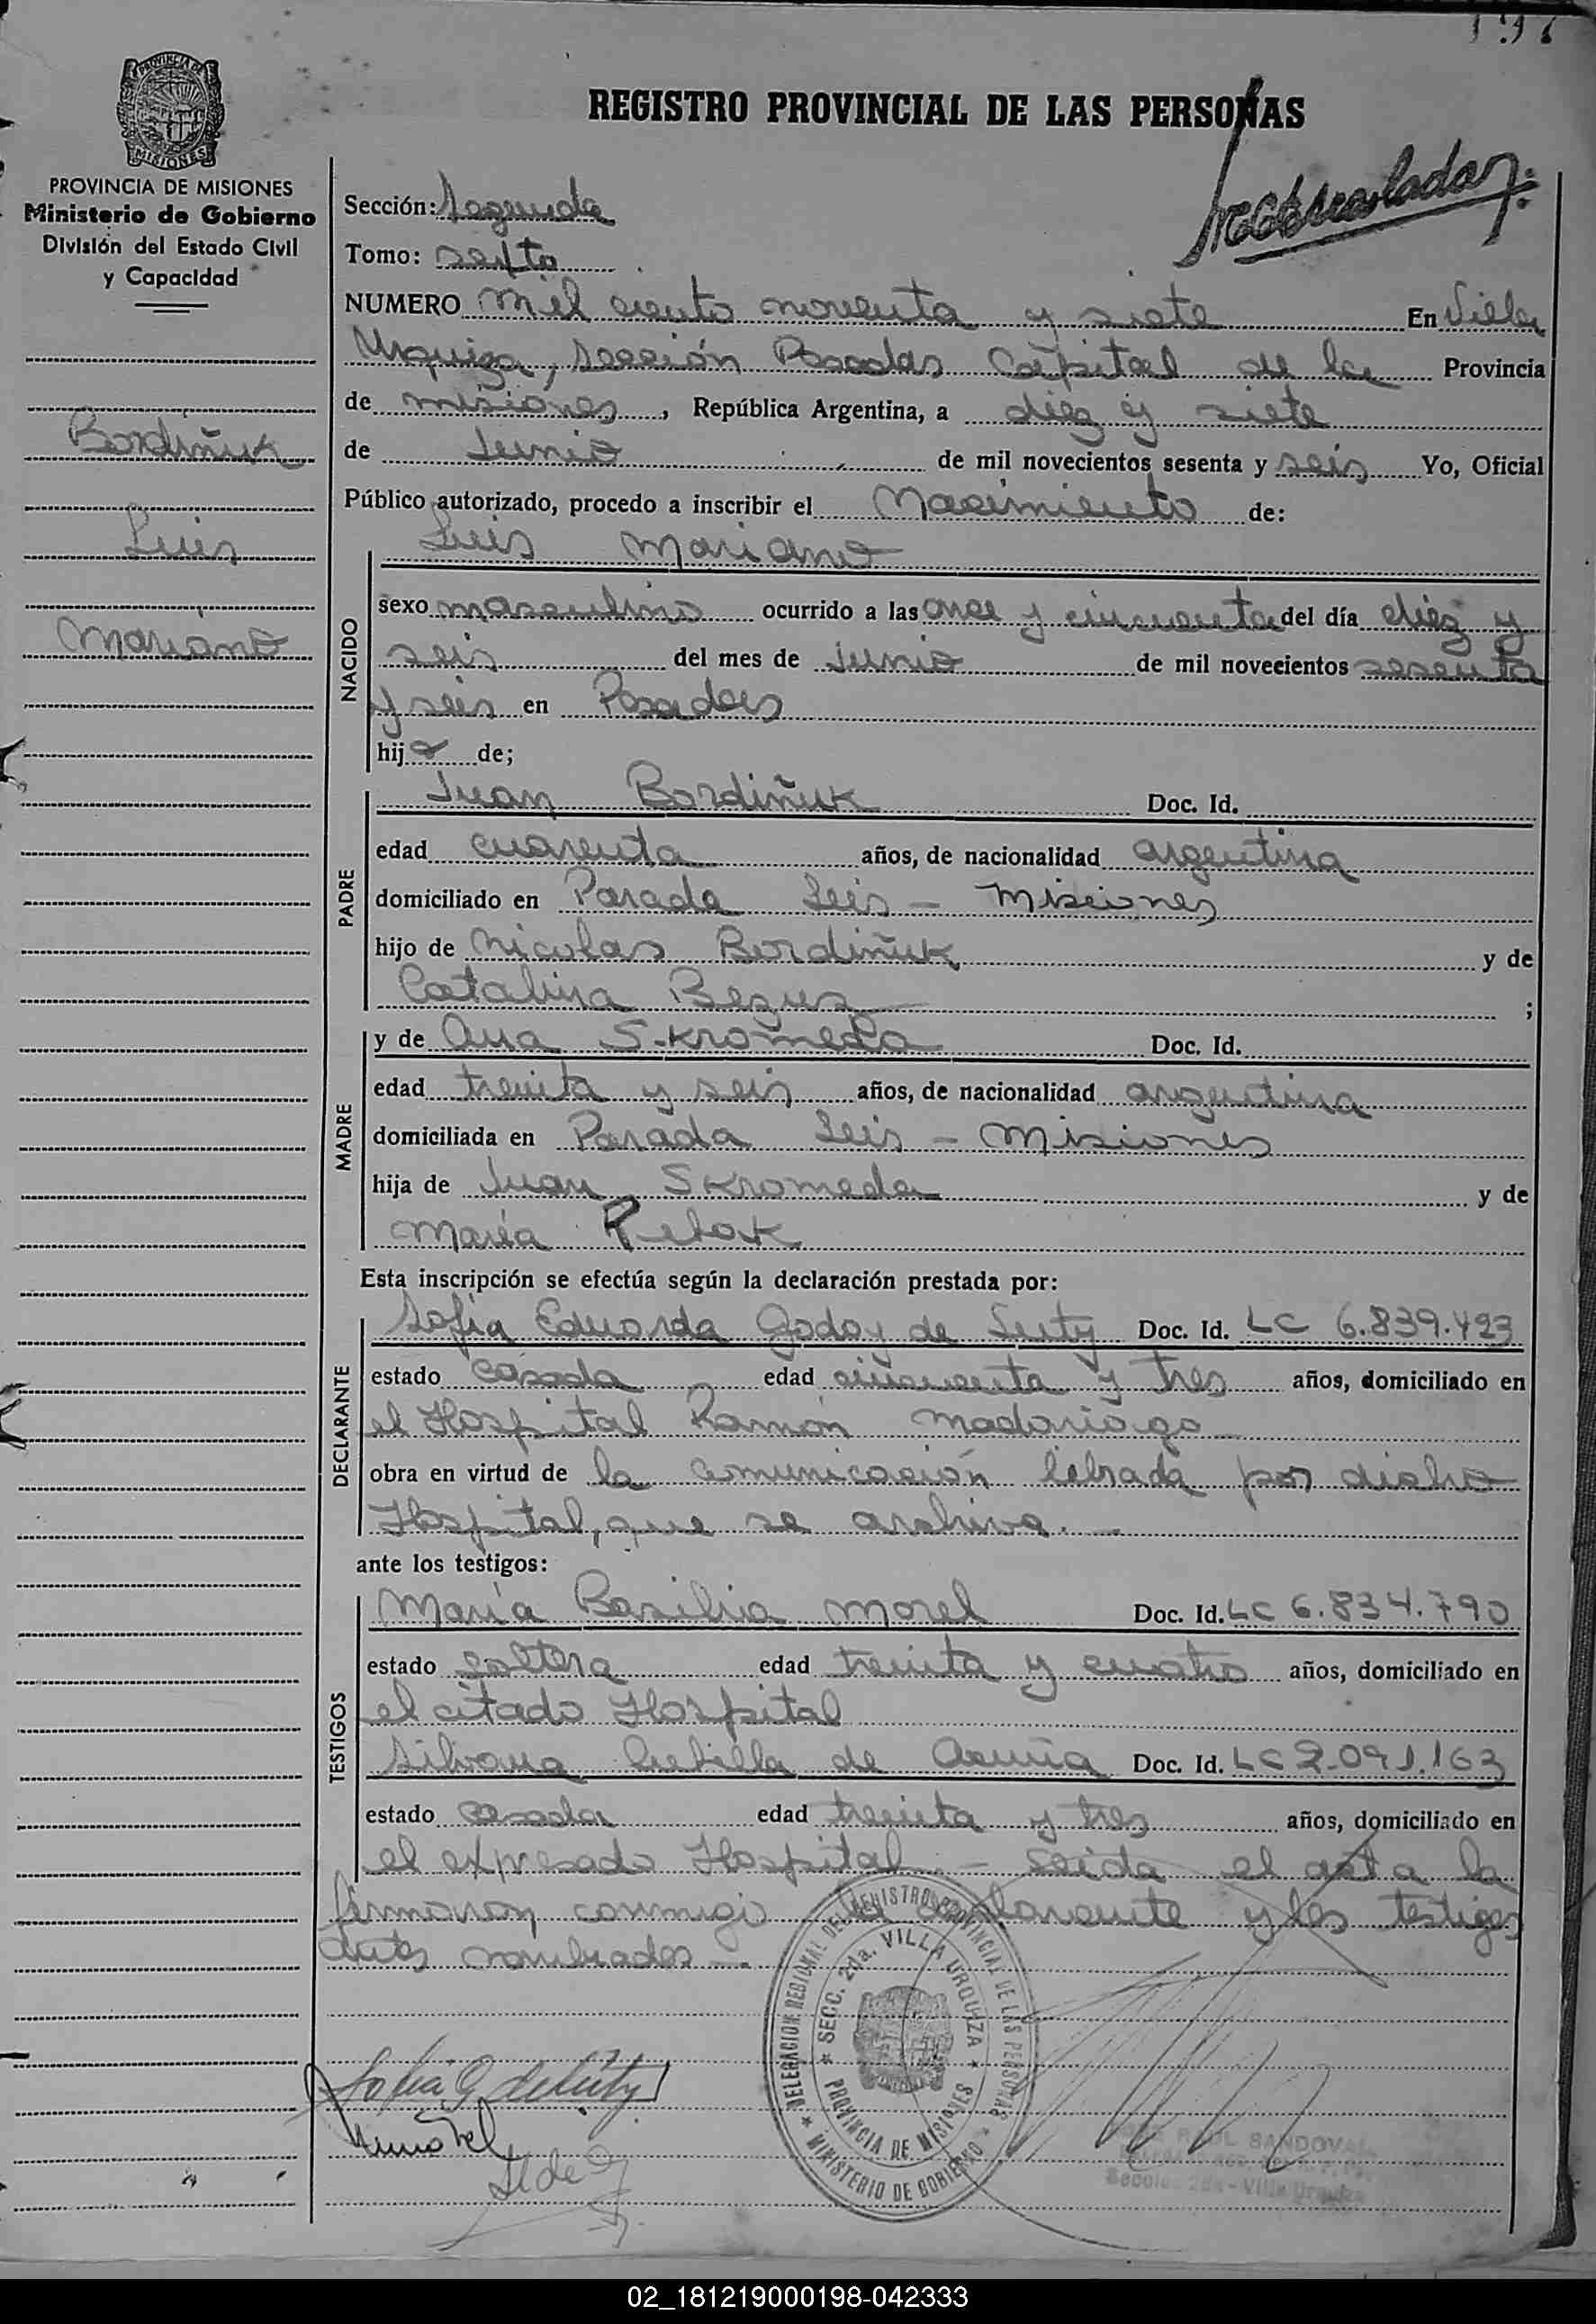 197
PROVINCIA DE MISIONES
PROVINCIA DE MISIONES
Ministerio de Gobierno
División del Estado Civil
y Capacidad
Bordiñuk
Luis
Mariano
REGISTRO PROVINCIAL DE LAS PERSONAS
Sección: Segunda
Tomo: sexto
NUMERO mil ciento noventa y siete En Villa
Urquiza, sección Posadas Capital de la Provincia
de misiones, República Argentina, a diez y siete
de Junio de mil novecientos sesenta y seis Yo, Oficial
Público autorizado, procedo a inscribir el Nacimiento de:
Luis Mariano
NACIDO
sexo masculino ocurrido a las once y cincuenta del día diez y
seis del mes de junio de mil novecientos sesenta
y seis en Posadas
hijo de;
PADRE
Juan Bordiñuk Doc. Id.
edad cuarenta años, de nacionalidad argentina
domiciliado en Parada Leis - Misiones
hijo de Nicolas Bordiñuk y de
Catalina Beguz ;
MADRE
y de Ana Skromeda Doc. Id.
edad treinta y seis años, de nacionalidad argentina
domiciliada en Parada Leis - Misiones
hija de Juan Skromeda y de
María Retak
Esta inscripción se efectúa según la declaración prestada por:
DECLARANTE
Sofia Eduarda Godoy de Doc. Id. LC 6.839.493
estado casada edad cincuenta y tres años, domiciliado en
el Hospital Ramón madariaga
obra en virtud de la comunicación librada por dicho
Hospital, que se archiva.-
ante los testigos:
TESTIGOS
María Basilia Morel Doc. Id. LC 6.834.790
estado soltera edad treinta y cuatro años, domiciliado en
el citado Hospital
Silvana de Acuña Doc. Id. LC 2.091.163
estado casada edad treinta y tres años, domiciliado en
el expresado Hospital.- Leida el acta la
firmaron conmigo la declarante y los testigos
antes nombrados -.
DELEGACION REGIONAL DEL REGISTRO PROVINCIAL DE LAS PERSONAS
* SECC. 2da. VILLA URQUIZA *
PROVINCIA DE MISIONES
* MINISTERIO DE GOBIERNO *
RAUL SANDOVAL
2da - Villa Urquiza
02_181219000198-042333